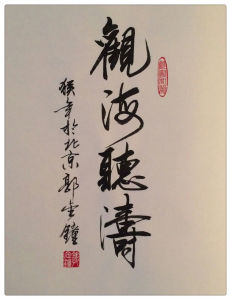 觀海聽濤
癸年於北京郭雲鐘